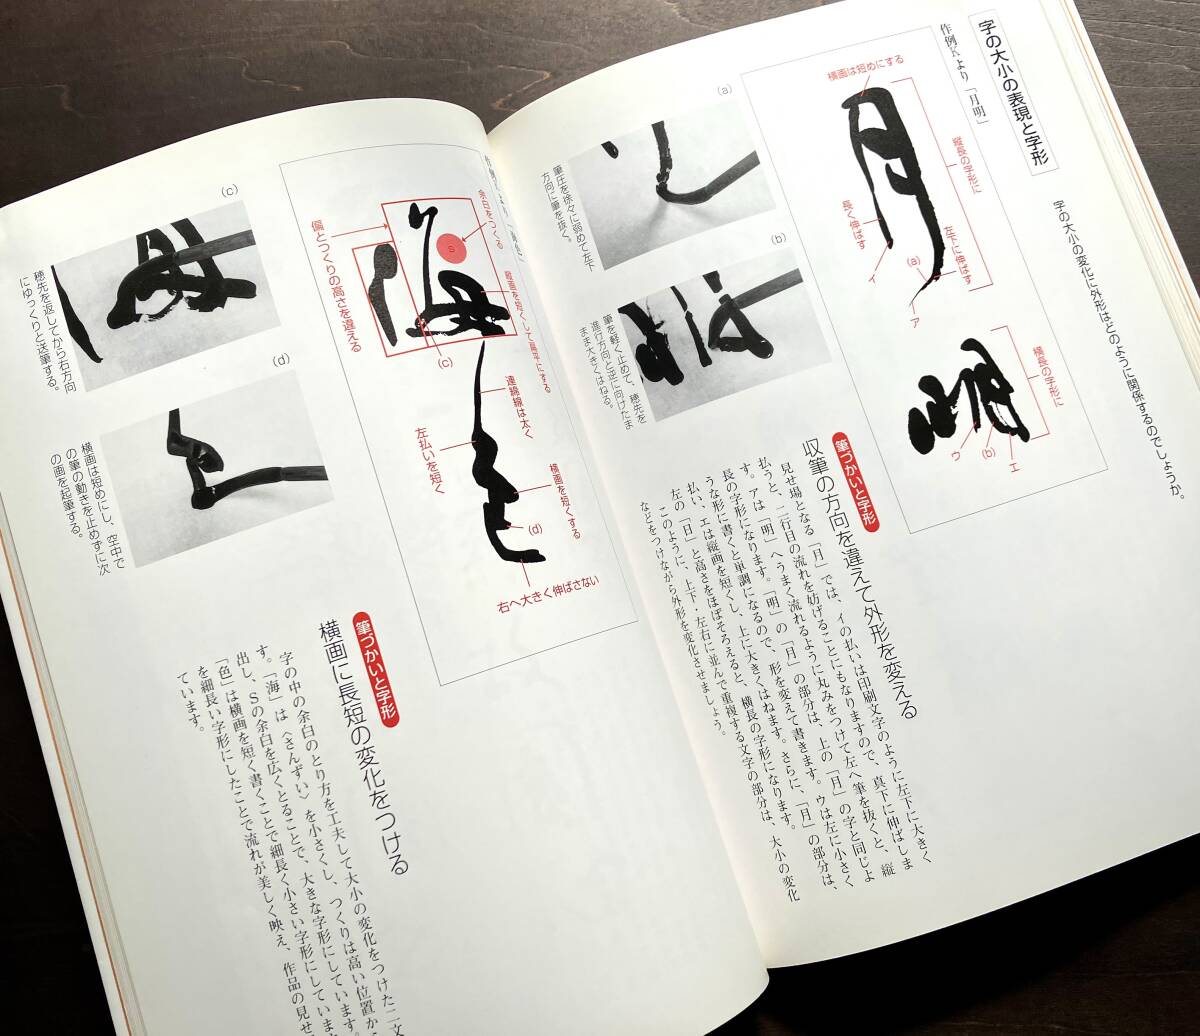 字の大小の表現と字形
字の大小の変化に外形はどのように関係するのでしょうか。
作例Kより「月明」
月
明
横画は短めにする
縦長の字形に
長く伸ばす
左下に伸ばす
イ
(a)
ア
横長の字形に
ウ
(b)
エ
(a)
筆圧を徐々に弱めて左下
方向に筆を抜く。
(b)
筆を軽く止めて、穂先を
進行方向と逆に向けたま
まま大きくはねる。
筆づかいと字形
収筆の方向を違えて外形を変える
見せ場となる「月」では、イの払いは印刷文字のように左下に大きく
払うと、二行目の流れを妨げることにもなりますので、真下に伸ばしま
す。アは「明」へうまく流れるように丸みをつけて左へ筆を抜くと、縦
長の字形になります。「明」の「月」の部分は、上の「月」の字と同じよ
うな形に書くと単調になるので、形を変えて書きます。ウは左に小さく
払い、エは縦画を短くし、上に大きくはねます。さらに、「月」の部分は、
左の「日」と高さをほぼそろえると、横長の字形になります。
このように、上下・左右に並んで重複する文字の部分は、大小の変化
などをつけながら外形を変化させましょう。
海
色
余白をつくる
S
偏とつくりの高さを違える
縦画を短くして扁平にする
(c)
連綿線は太く
左払いを短く
横画を短くする
(d)
右へ大きく伸ばさない
(c)
穂先を返してから右方向
にゆっくりと送筆する。
(d)
横画は短めにし、空中で
の筆の動きを止めずに次
の画を起筆する。
筆づかいと字形
横画に長短の変化をつける
字の中の余白のとり方を工夫して大小の変化をつけた二文
す。「海」は〈さんずい〉を小さくし、つくりは高い位置から
出し、Sの余白を広くとることで、大きな字形にしています
「色」は横画を短く書くことで細長く小さい字形にしていま
を細長い字形にしたことで流れが美しく映え、作品の見せ
ています。